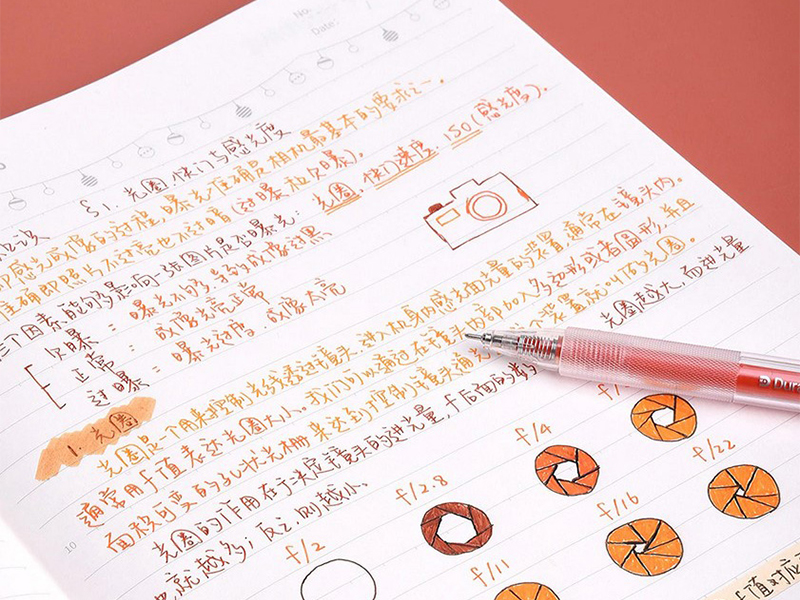 No.
Date:
§1. 光圈、快门与感光度
即感光成像的过程，曝光准确是相机最基本的要求之一。
准确即照片不过亮也不过暗(过曝和欠曝)。
三个因素能够影响一张图片是否曝光：光圈、快门速度、ISO(感光度)。
欠曝：曝光不够，导致成像过黑
正常：成像亮亮正常
过曝：曝光过度，成像太亮
1. 光圈：
光圈是一个用来控制光线透过镜头，进入机身内感光面光量的装置，通常在镜头内。
通常用f值表达光圈大小。我们可以通过在镜头内部加入多边形或者圆形，并且
面积可变的孔状光栅来达到控制镜头通光 个装置就叫做光圈。
光圈的作用在于决定镜头的进光量，f后面的数 光圈越大，而进光量
也就越多；反之，则越小。
f/2
f/2.8
f/4
f/11
f/16
f/22
10
f值对应